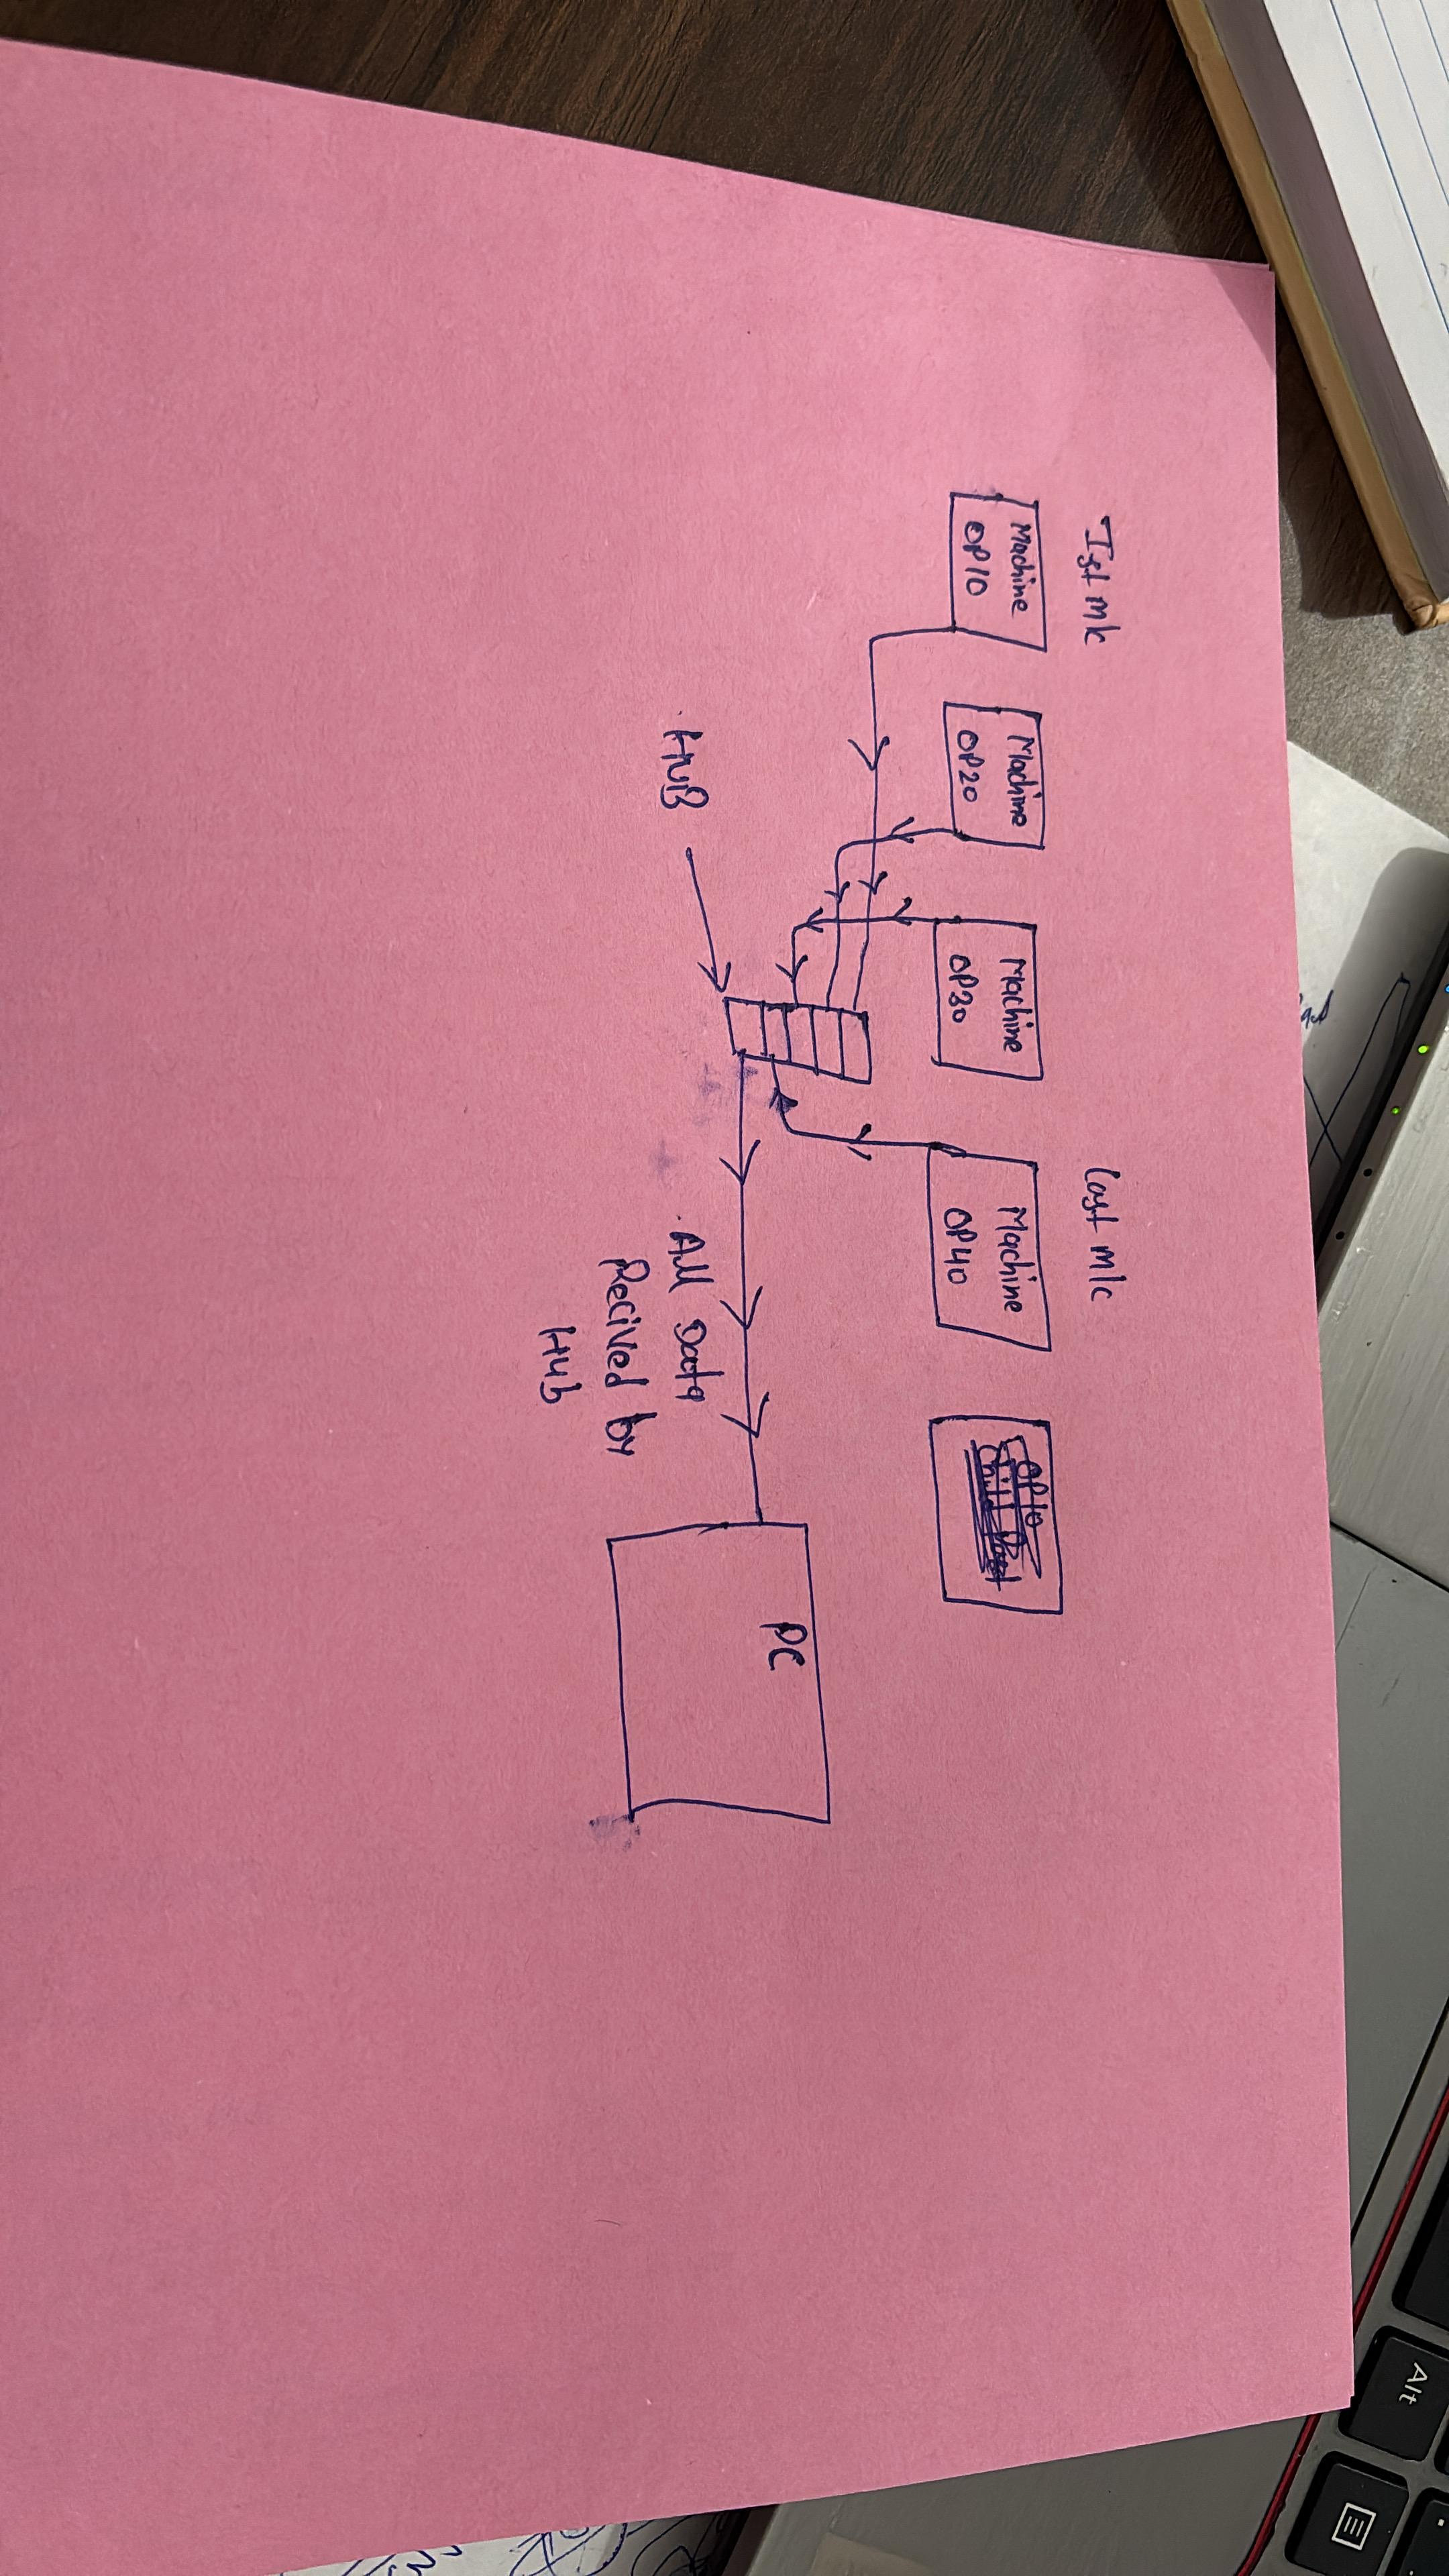 Ist m/c
Last m/c
Machine
OP10
Machine
OP20
Machine
OP30
Machine
OP40
OP10
HUB
All Data
Recived by
Hub
PC
Alt